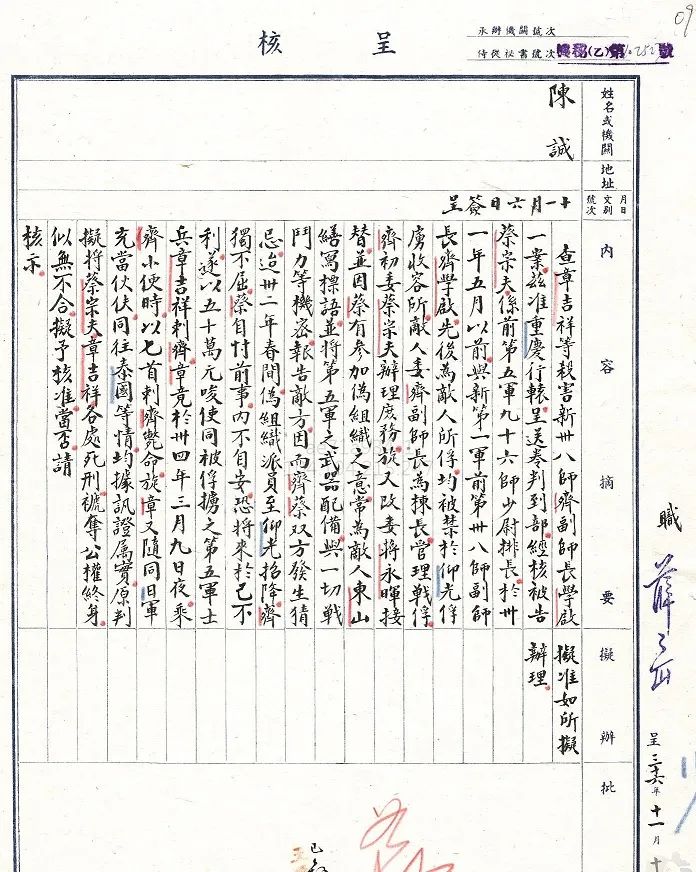 呈核
承辦機關號次
侍從祕書號次
姓名或機關
陳誠
地址
月日
文別
號次
十一月六日簽呈
內容摘要
查章吉祥等殺害新卅八師齊副師長學啟
一業茲准重慶行轅呈送卷判到部經核被告
蔡宗夫係前第五軍九十六師少尉排長於卅
一年五月以前與新第一軍前第卅八師副師
長齊學啟先後為敵人所俘均被禁於仰光俘
虜收容所敵人委齊副師長為揀長管理戰俘
齊初委蔡宗夫辦理庶務旋又改委蔣永暉接
替並因蔡有參加偽組織之意常為敵人東山
繕寫標語並將第五軍之武器配備與一切戰
鬥力等機密報告敵方因而齊蔡双方發生猜
忌迨卅二年春間偽組織派員至仰光招降齊
獨不屈蔡自忖前事內不自安恐將來於己不
利遂以五十萬元唆使同被俘擄之第五軍士
兵章吉祥刺齊章竟於卅四年三月九日夜乘
齊小便時以匕首刺齊斃命旋章又隨同日軍
充當伙伕同往泰國等情均據訊證属實原判
擬將蔡宗夫章吉祥各處死刑褫奪公權終身
似無不合擬予核准當否請
核示
擬辦
擬准如所擬
辦理
批
職
呈三十六年十一月十